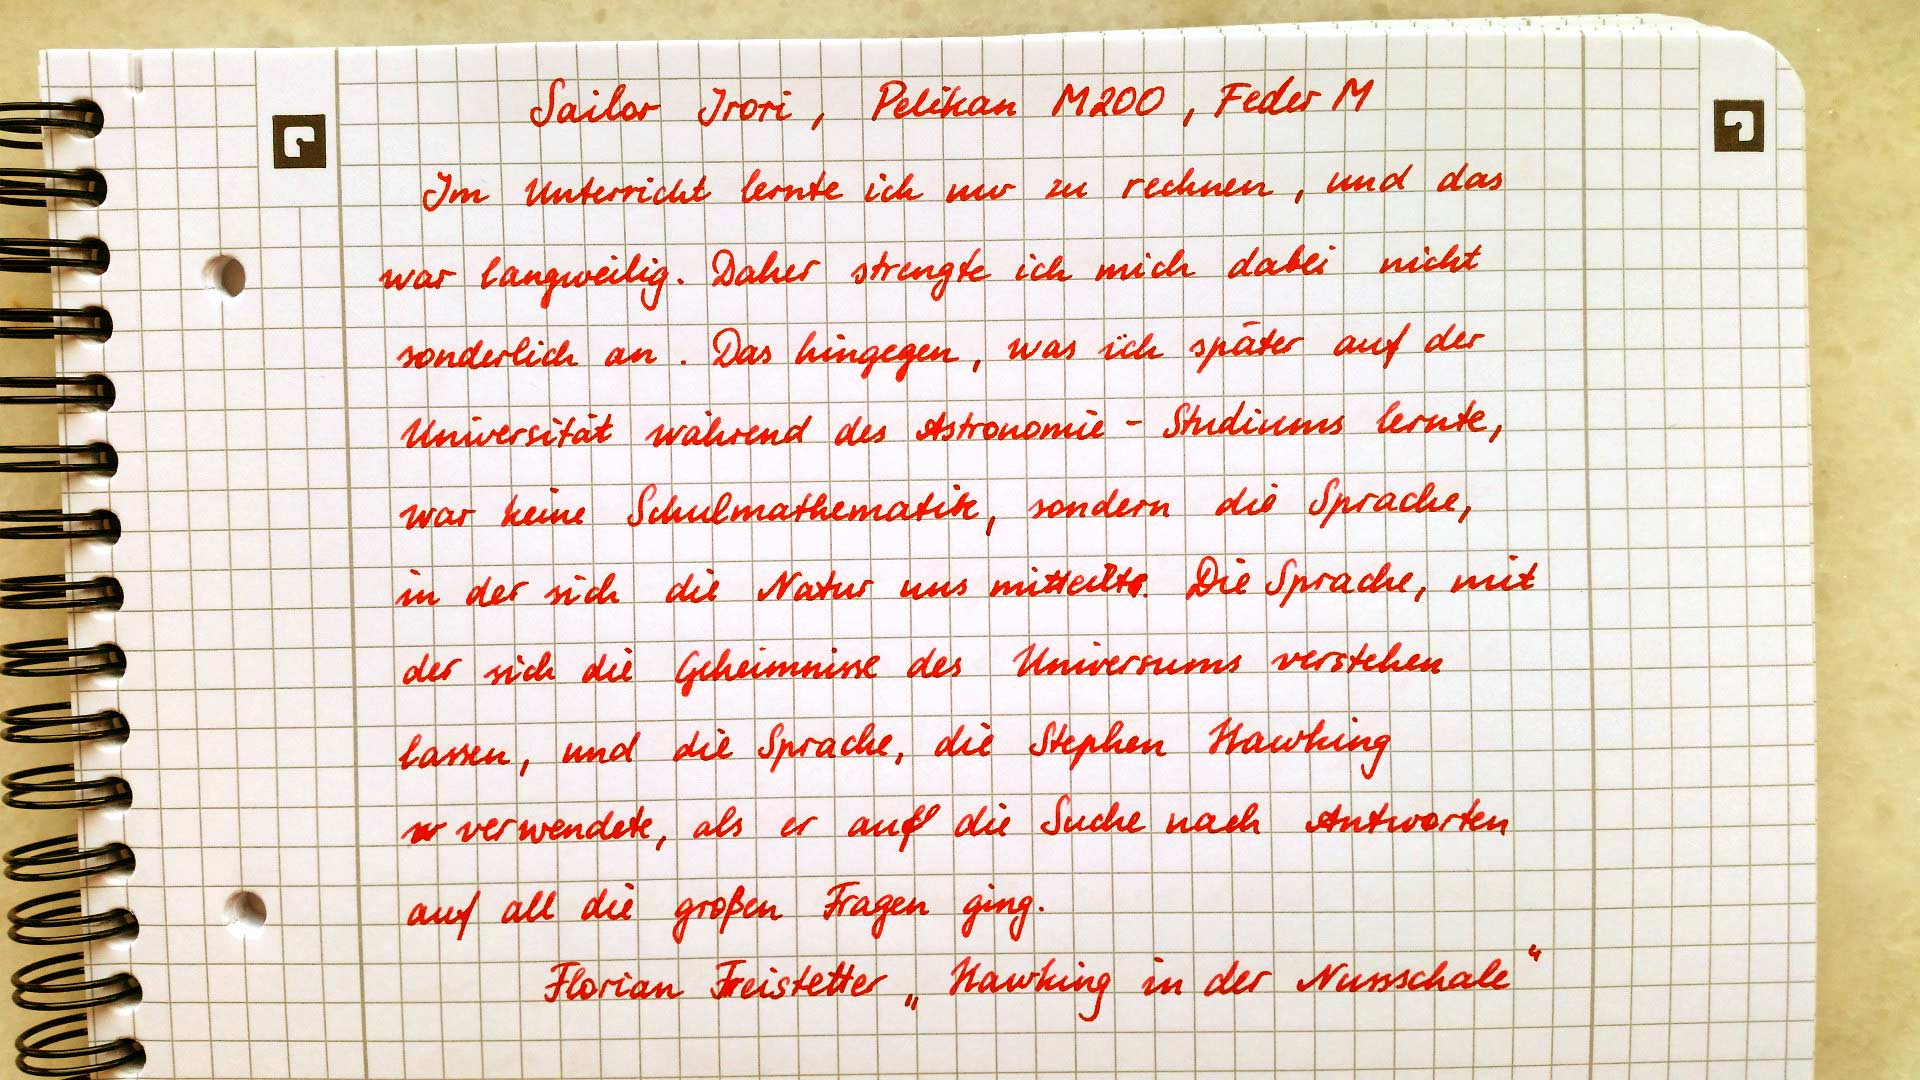 Sailor Irori, Pelikan M200, Feder M
Im Unterricht lernte ich nur zu rechnen, und das
war langweilig. Daher strengte ich mich dabei nicht
sonderlich an. Das hingegen, was ich später auf der
Universität während des Astronomie-Studiums lernte,
war keine Schulmathematik, sondern die Sprache,
in der sich die Natur uns mitteilte. Die Sprache, mit
der sich die Geheimnisse des Universums verstehen
lassen, und die Sprache, die Stephen Hawking
verwendete, als er auf die Suche nach Antworten
auf all die großen Fragen ging.
Florian Freistetter „Hawking in der Nussschale“